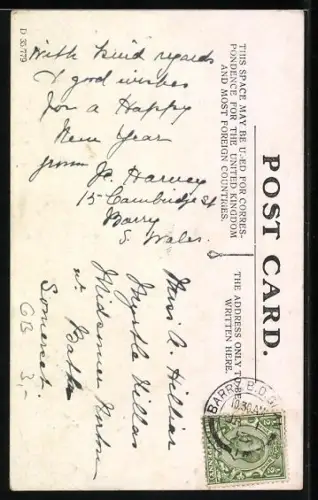 D 35779
With kind regards
& good wishes
for a Happy
New Year
from J. Harvey
15 Cambridge St
Barry
S. Wales.
THIS SPACE MAY BE USED FOR CORRES-
PONDENCE FOR THE UNITED KINGDOM
AND MOST FOREIGN COUNTRIES.
POST CARD.
THE ADDRESS ONLY TO BE
WRITTEN HERE.
Miss A. Hillier
Myrtle Villas
Midsomer Norton
nr Bath
Somerset.
GB 3,-
BARRY B.O.
10.30 AM